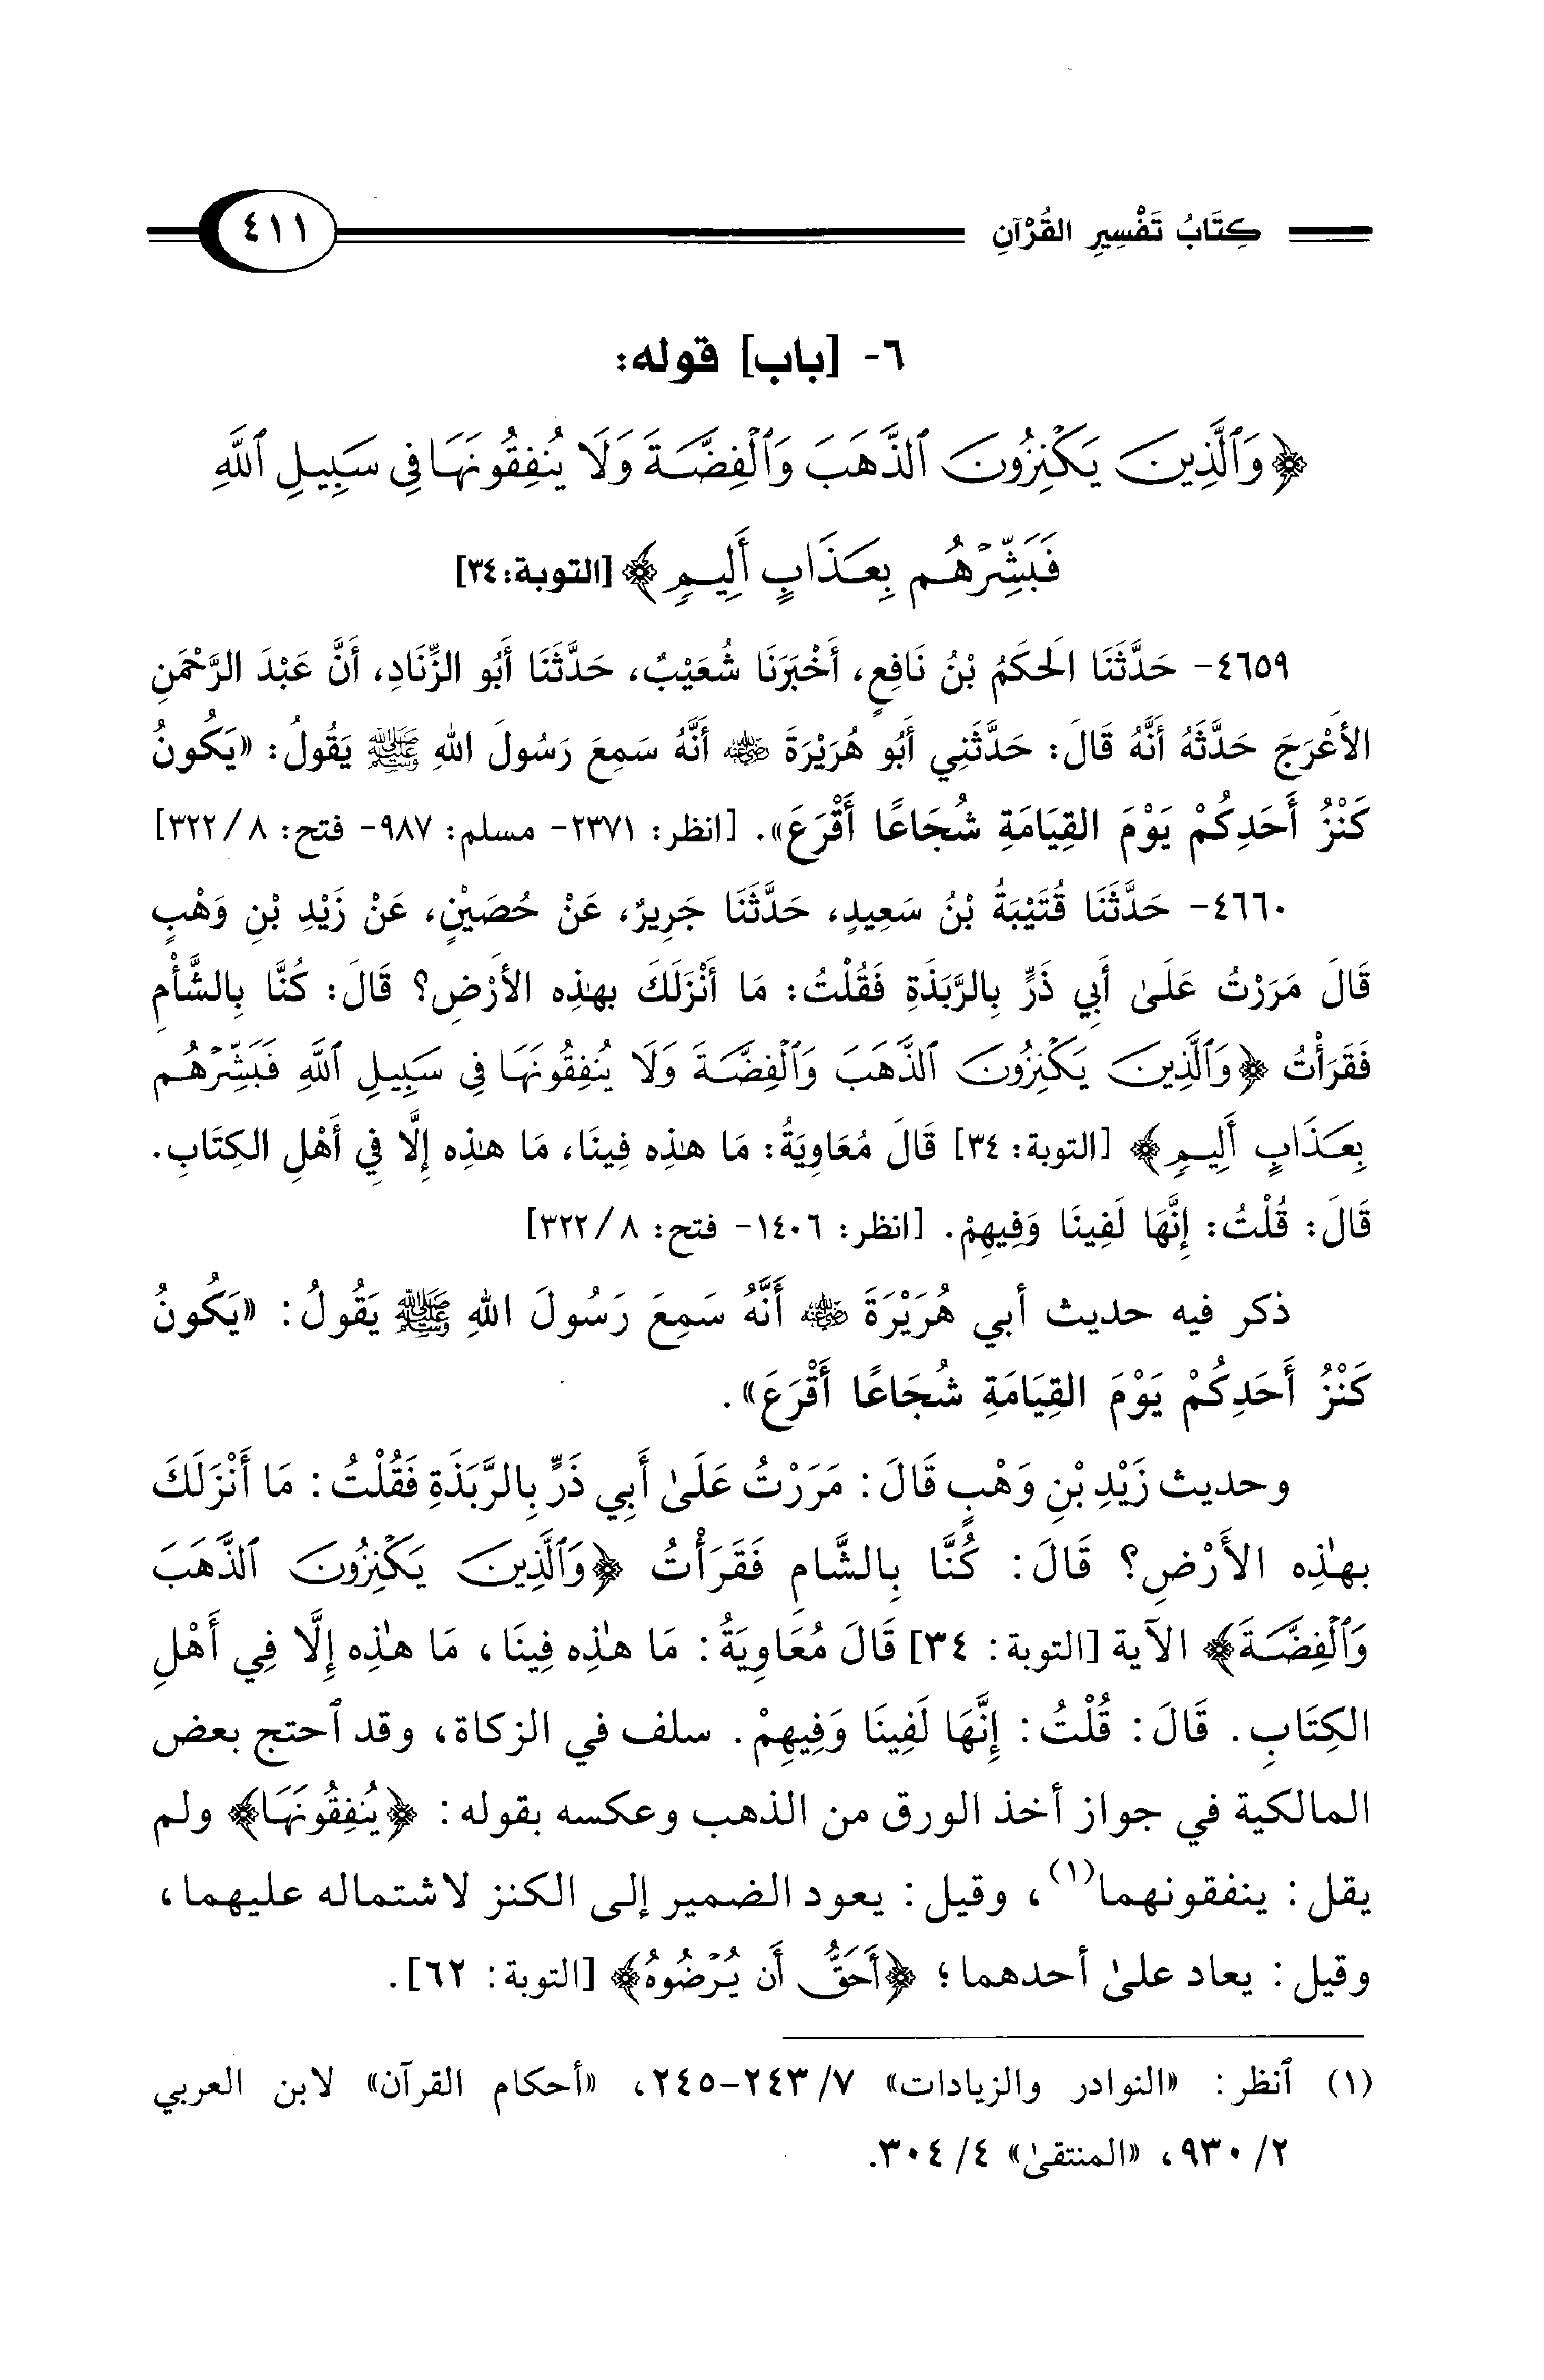 كِتَابُ تَفْسِيرِ القُرْآنِ ٤١١
٦- [باب] قوله:
﴿وَٱلَّذِينَ يَكْنِزُونَ ٱلذَّهَبَ وَٱلْفِضَّةَ وَلَا يُنفِقُونَهَا فِى سَبِيلِ ٱللَّهِ
فَبَشِّرْهُم بِعَذَابٍ أَلِيمٍ﴾ [التوبة: ٣٤]
٤٦٥٩- حَدَّثَنَا الَحكَمُ بْنُ نَافِعٍ، أَخْبَرَنَا شُعَيْبٌ، حَدَّثَنَا أَبُو الزِّنَادِ، أَنَّ عَبْدَ الرَّحْمَنِ
الأَعْرَجَ حَدَّثَهُ أَنَّهُ قَالَ: حَدَّثَنِي أَبُو هُرَيْرَةَ رضي الله عنه أَنَّهُ سَمِعَ رَسُولَ اللهِ ﷺ يَقُولُ: «يَكُونُ
كَنْزُ أَحَدِكُمْ يَوْمَ القِيَامَةِ شُجَاعًا أَقْرَعَ». [انظر: ٢٣٧١- مسلم: ٩٨٧- فتح: ٣٢٢/٨]
٤٦٦٠- حَدَّثَنَا قُتَيْبَةُ بْنُ سَعِيدٍ، حَدَّثَنَا جَرِيرٌ، عَنْ حُصَيْنٍ، عَنْ زَيْدِ بْنِ وَهْبٍ
قَالَ مَرَرْتُ عَلَىٰ أَبِي ذَرٍّ بِالرَّبَذَةِ فَقُلْتُ: مَا أَنْزَلَكَ بهٰذِه الأَرْضِ؟ قَالَ: كُنَّا بِالشَّأْمِ
فَقَرَأْتُ ﴿وَٱلَّذِينَ يَكْنِزُونَ ٱلذَّهَبَ وَٱلْفِضَّةَ وَلَا يُنفِقُونَهَا فِى سَبِيلِ ٱللَّهِ فَبَشِّرْهُم
بِعَذَابٍ أَلِيمٍ﴾ [التوبة: ٣٤] قَالَ مُعَاوِيَةُ: مَا هٰذِه فِينَا، مَا هٰذِه إِلَّا فِي أَهْلِ الكِتَابِ.
قَالَ: قُلْتُ: إِنَّهَا لَفِينَا وَفِيهِمْ. [انظر: ١٤٠٦- فتح: ٣٢٢/٨]
ذكر فيه حديث أبي هُرَيْرَةَ رضي الله عنه أَنَّهُ سَمِعَ رَسُولَ اللهِ ﷺ يَقُولُ: «يَكُونُ
كَنْزُ أَحَدِكُمْ يَوْمَ القِيَامَةِ شُجَاعًا أَقْرَعَ».
وحديث زَيْدِ بْنِ وَهْبٍ قَالَ: مَرَرْتُ عَلَىٰ أَبِي ذَرٍّ بِالرَّبَذَةِ فَقُلْتُ: مَا أَنْزَلَكَ
بهٰذِه الأَرْضِ؟ قَالَ: كُنَّا بِالشَّامِ فَقَرَأْتُ ﴿وَٱلَّذِينَ يَكْنِزُونَ ٱلذَّهَبَ
وَٱلْفِضَّةَ﴾ الآية [التوبة: ٣٤] قَالَ مُعَاوِيَةُ: مَا هٰذِه فِينَا، مَا هٰذِه إِلَّا فِي أَهْلِ
الكِتَابِ. قَالَ: قُلْتُ: إِنَّهَا لَفِينَا وَفِيهِمْ. سلف في الزكاة، وقد ٱحتج بعض
المالكية في جواز أخذ الورق من الذهب وعكسه بقوله: ﴿يُنفِقُونَهَا﴾ ولم
يقل: ينفقونهما(١)، وقيل: يعود الضمير إلى الكنز لاشتماله عليهما،
وقيل: يعاد علىٰ أحدهما؛ ﴿أَحَقُّ أَن يُرْضُوهُ﴾ [التوبة: ٦٢].
(١) ٱنظر: «النوادر والزيادات» ٧/ ٢٤٣-٢٤٥، «أحكام القرآن» لابن العربي
٢/ ٩٣٠، «المنتقىٰ» ٤/ ٣٠٤.